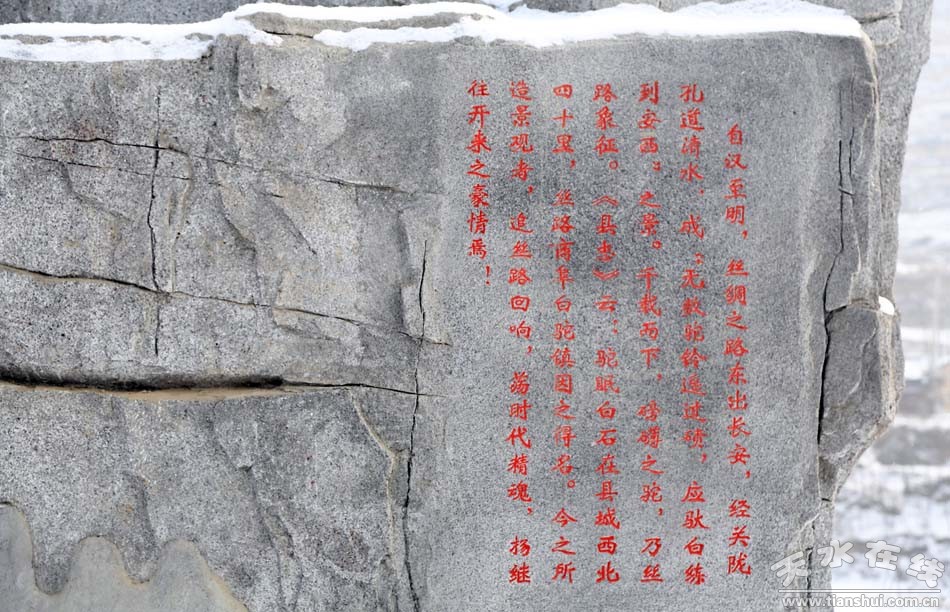 自汉至明，丝绸之路东出长安，经关陇
孔道清水，成“无数驼铃遥过碛，应驮白练
到安西”之景。千载而下，磅礴之驼，乃丝
路象征。《县志》云：驼眠白石在县城西北
四十里，丝路商阜白驼镇因之得名。今之所
造景观者，追丝路回响，荡时代精魂，扬继
往开来之豪情焉！
天水在线
www.tianshui.com.cn